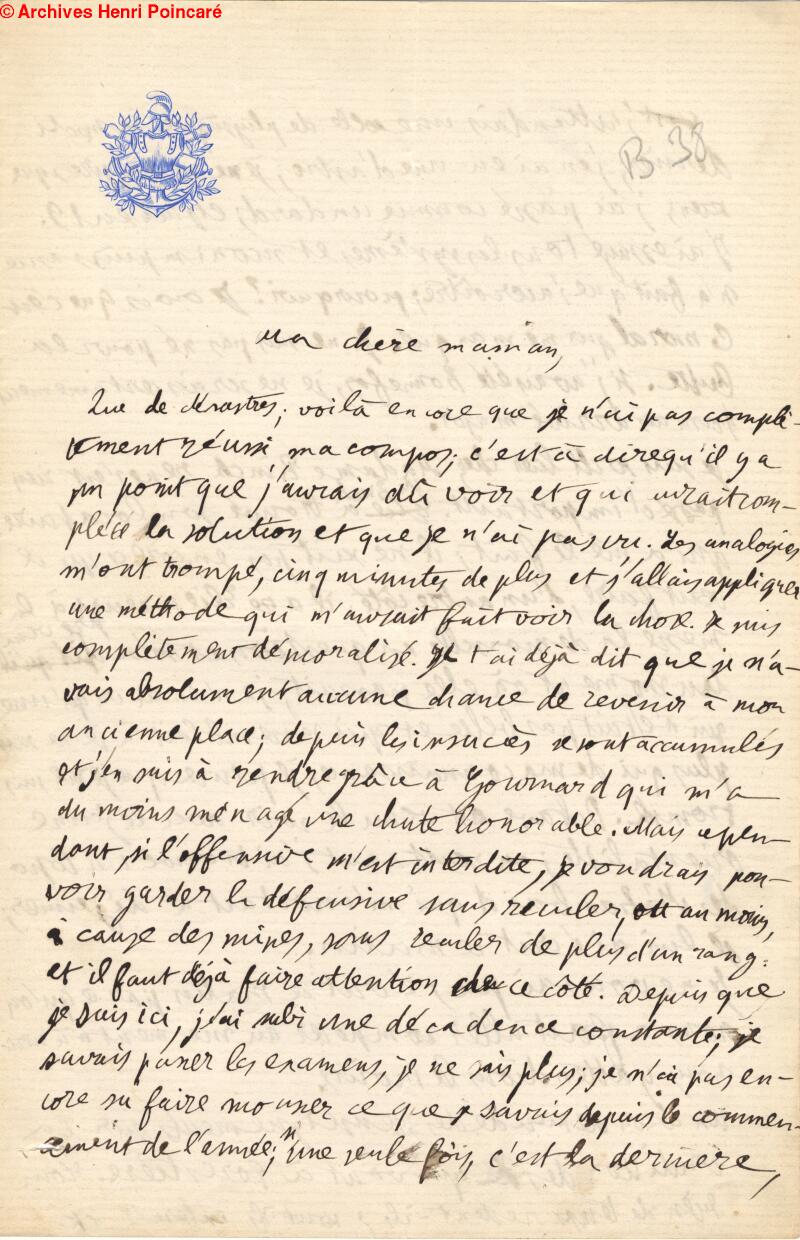 © Archives Henri Poincaré
B 38
Ma chère maman,
Que de désastres; voilà encore que je n'ai pas complè-
tement réussi ma compos; c'est à dire qu'il y a
un point que j'aurais dû voir et qui aurait com-
plété la solution et que je n'ai pas vu. Les analogies
m'ont trompé, cinq minutes de plus et j'allais appliquer
une méthode qui m'aurait fait voir la chose. Je suis
complètement démoralisé. Je t'ai déjà dit que je n'a-
vais absolument aucune chance de revenir à mon
ancienne place; depuis les insuccès se sont accumulés
et j'en suis à rendre grâce à Gournard qui m'a
du moins ménagé une chute honorable. Mais cepen-
dant, si l'offensive m'est interdite, je voudrais pou-
voir garder la défensive sans reculer, ou au moins,
à cause des mines, sans reculer de plus d'un rang.
et il faut déjà faire attention de ce côté. Depuis que
je suis ici, j'ai subi une décadence constante; je
savais passer les examens, je ne sais plus; je n'ai pas en-
core su faire mousser ce que je savais depuis le commen-
cement de l'année; une seule fois, c'est la dernière,